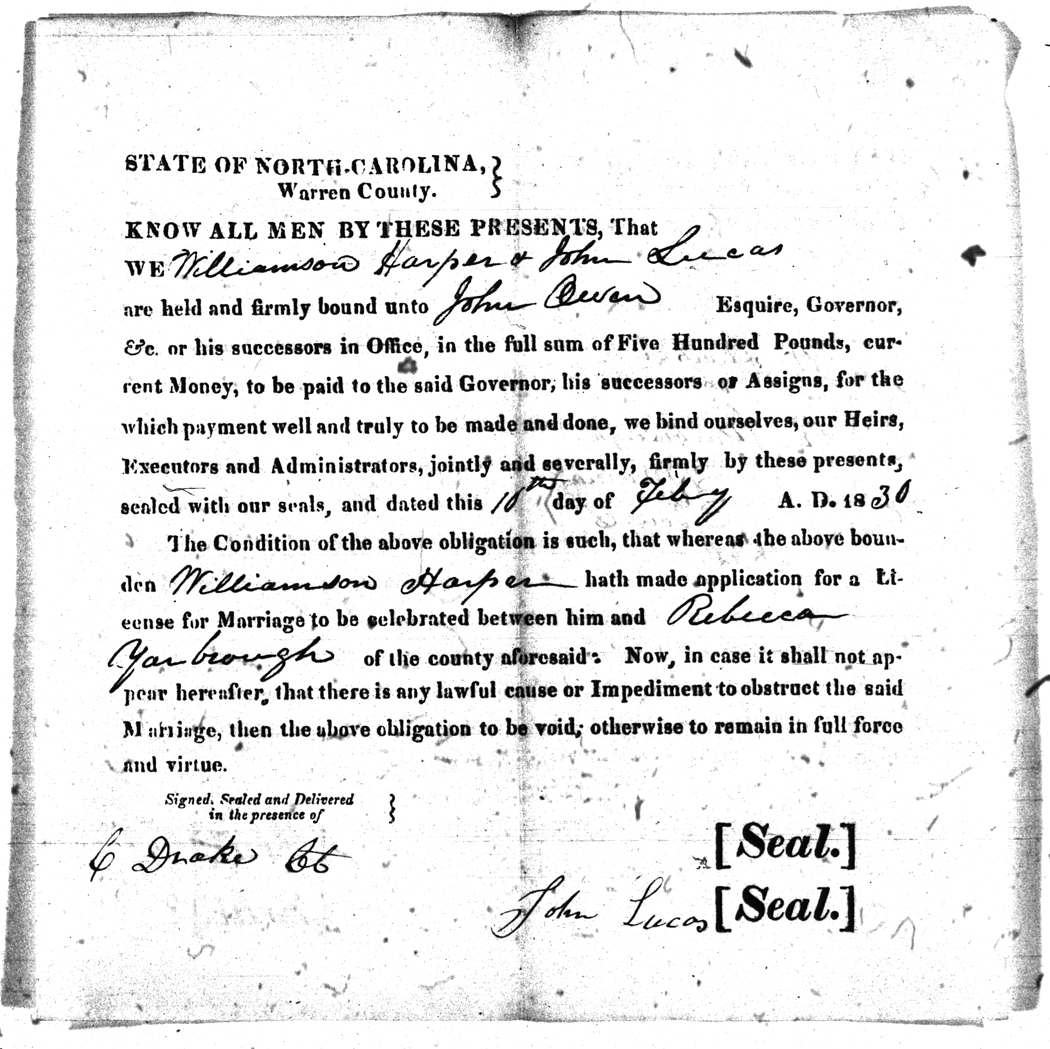 STATE OF NORTH-CAROLINA, }
Warren County.
KNOW ALL MEN BY THESE PRESENTS, That
WE Williamson Harper & John Lucas
are held and firmly bound unto John Owen Esquire, Governor,
&c. or his successors in Office, in the full sum of Five Hundred Pounds, cur-
rent Money, to be paid to the said Governor, his successors or Assigns, for the
which payment well and truly to be made and done, we bind ourselves, our Heirs,
Executors and Administrators, jointly and severally, firmly by these presents,
sealed with our seals, and dated this 10th day of Feby A. D. 1830
The Condition of the above obligation is such, that whereas the above boun-
den Williamson Harper hath made application for a Li-
cense for Marriage to be celebrated between him and Rebecca
Yarbrough of the county aforesaid: Now, in case it shall not ap-
pear hereafter, that there is any lawful cause or Impediment to obstruct the said
Marriage, then the above obligation to be void; otherwise to remain in full force
and virtue.
Signed, Sealed and Delivered }
in the presence of
C Drake [Seal.]
John Lucas [Seal.]